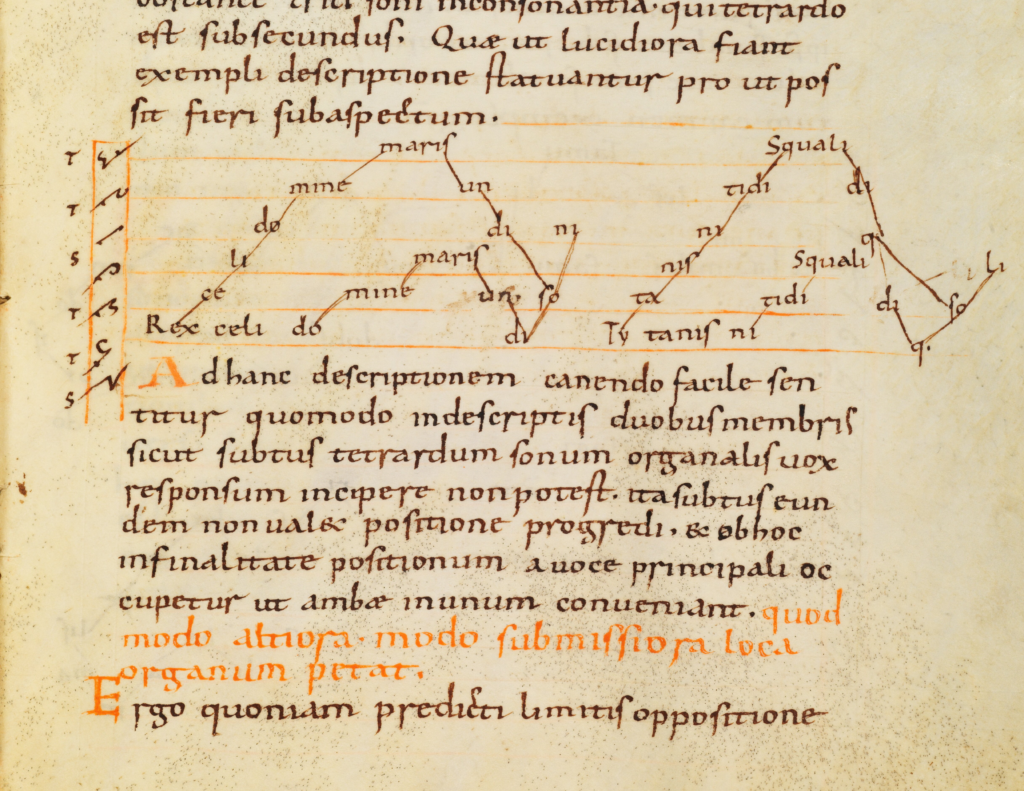 obstante tritoni inconsonantia. qui tetrardo
est subsecundus. Quæ ut lucidiora fiant
exempli descriptione statuantur pro ut pos
sit fieri subaspectum.
T maris Squali
mine un tidi di
T do di ni ni q
S li maris nis Squali li
ce mine un so ta tidi di so
T Rex celi do di Ty tanis ni q.
T
S
Ad hanc descriptionem canendo facile sen
titur quomodo indescriptis duobus membris
sicut subtus tetrardum sonum organalis uox
responsum incipere non potest. ita subtus eun
dem non ualet positione progredi. & ob hoc
infinalitate positionum a uoce principali oc
cupetur ut ambæ inunum conueniant. quod
modo altiora. modo submissiora loca
organum petat.
Ergo quoniam predicti limitis oppositione